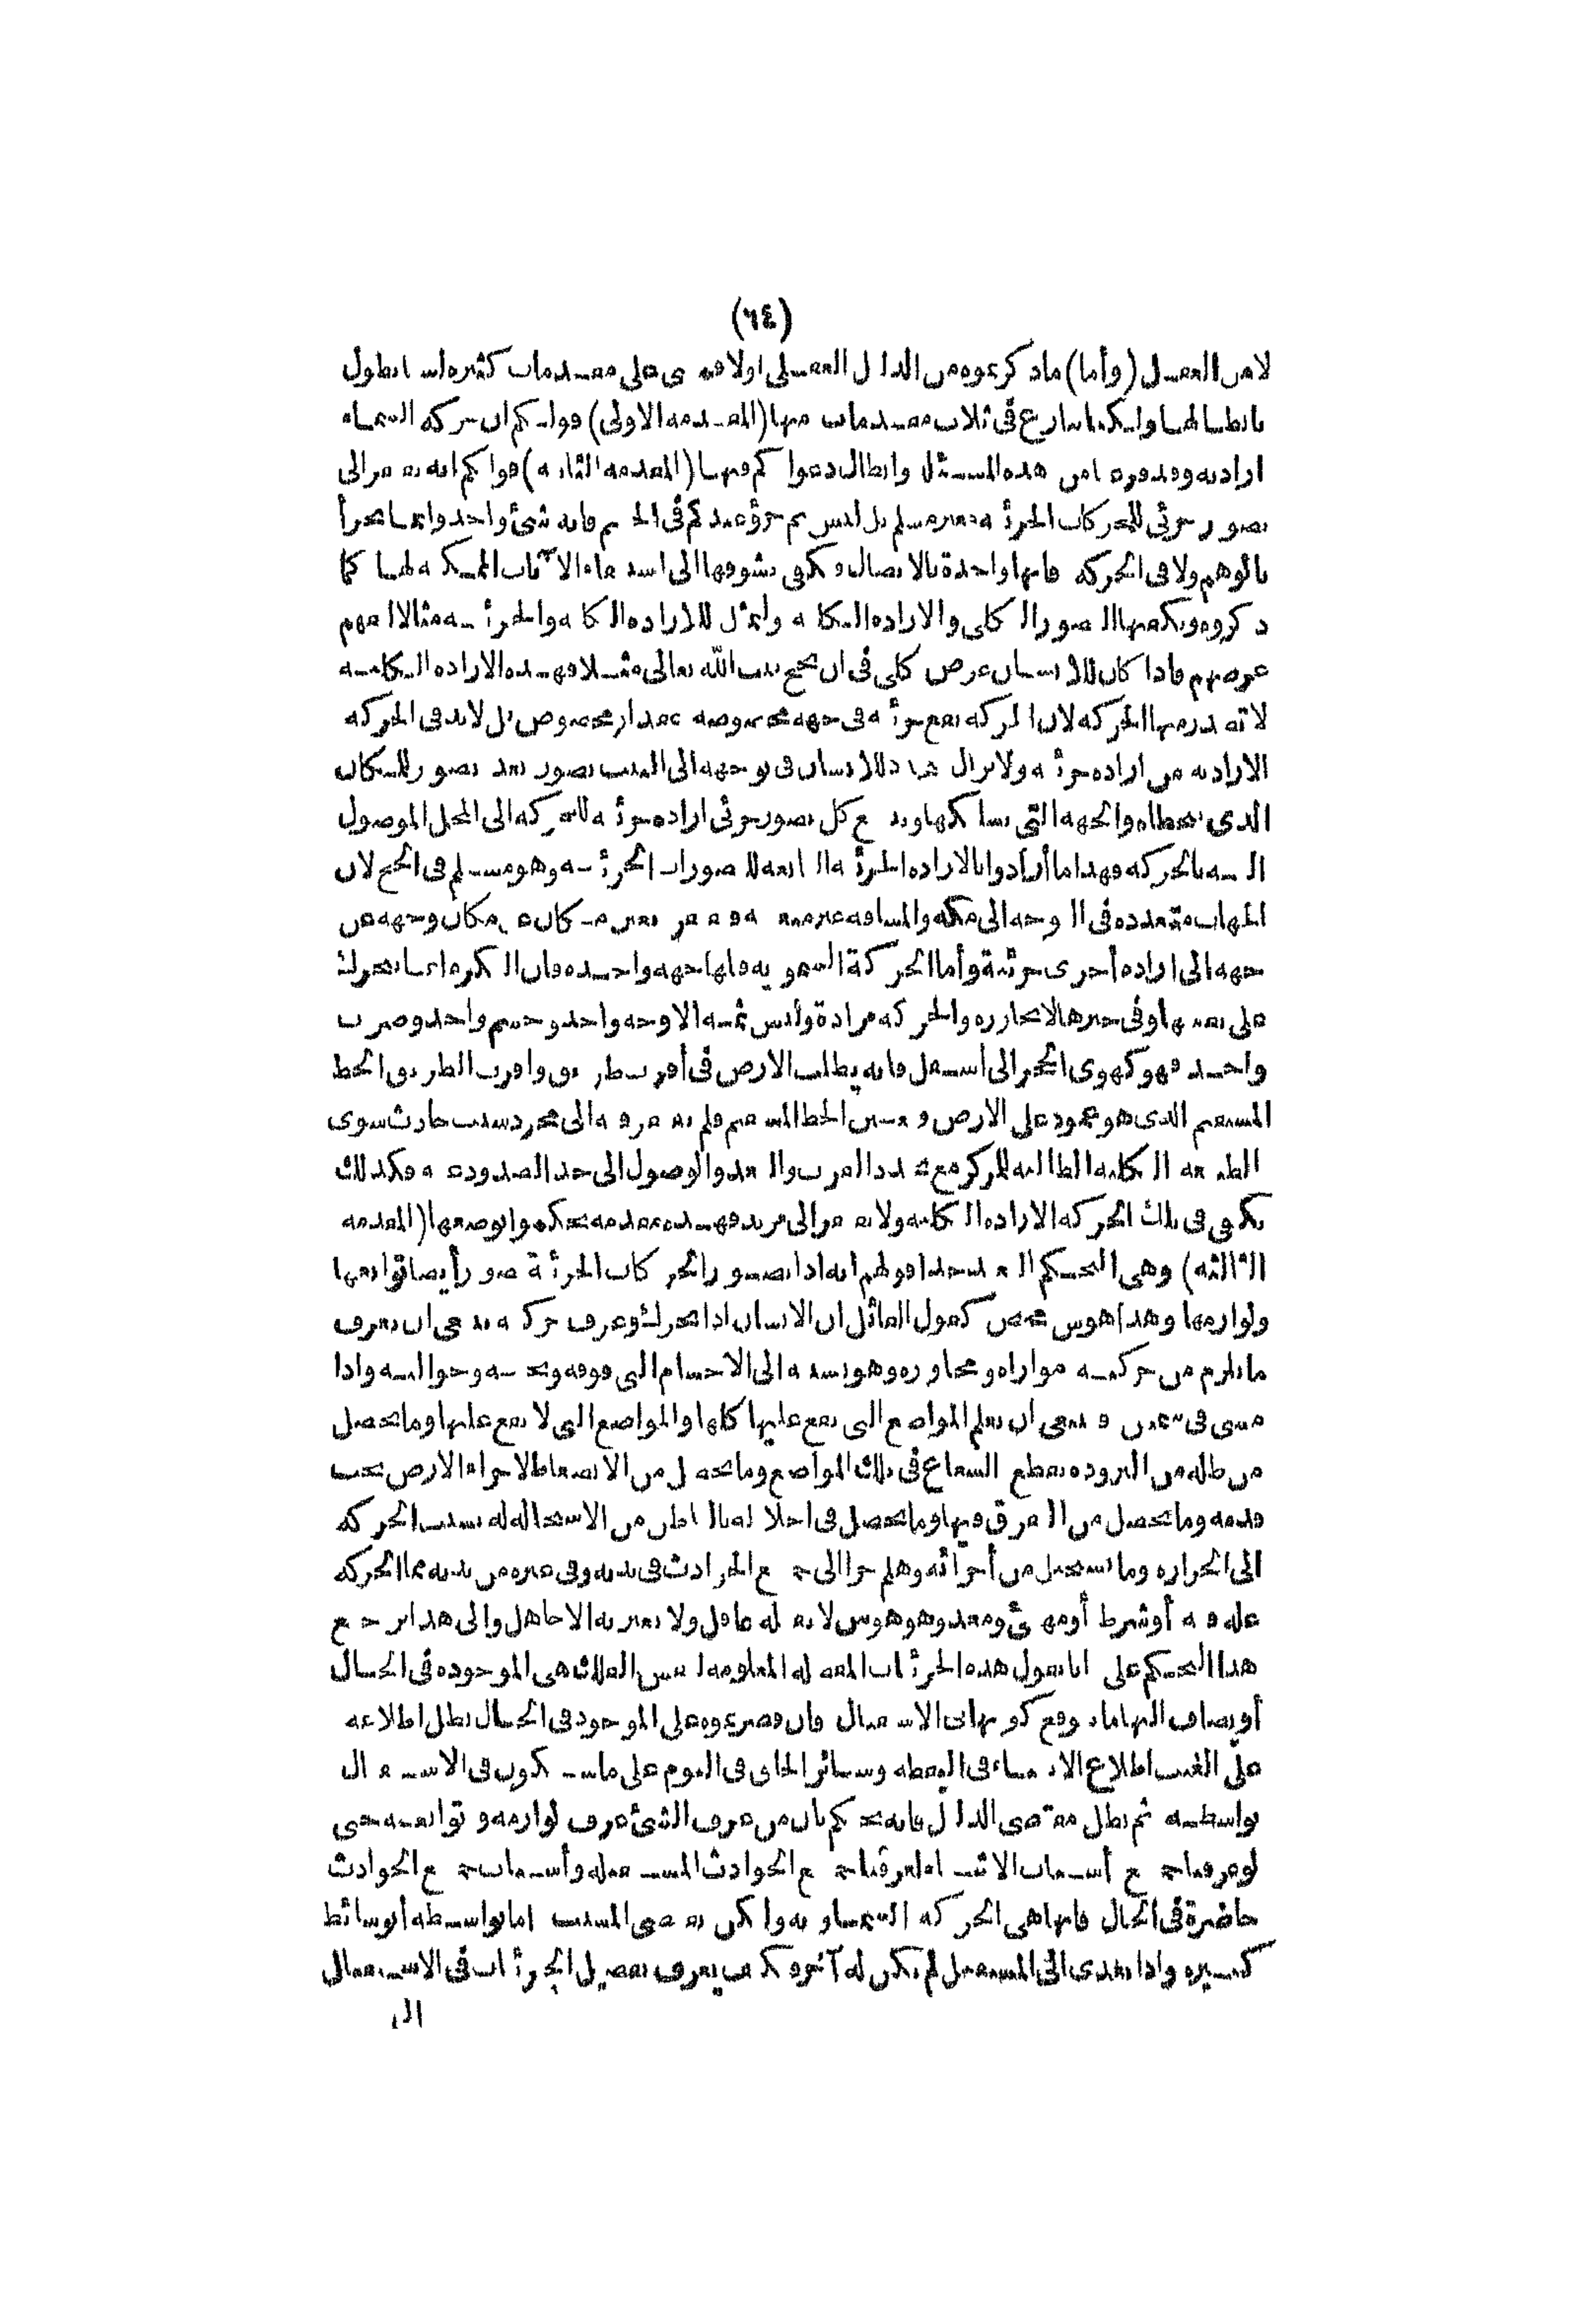 (٦٤)
لامن العقل (وأما) ماذكرتموه من الدليل العقلى اولا فمبنى على مقدمات كثيرة لسنا نطول
بابطالها ولكنا ننازع فى ثلاث مقدمات منها (المقدمة الاولى) قولكم ان حركة السماء
ارادية وقد فرغنا من هذه المسئلة وابطال دعواكم فيها (المقدمة الثانية) قولكم انه يفتقر الى
تصور جزئى للحركات الجزئية فغير مسلم بل ليس ثم جزؤ عندكم فى الجسم فانه شئ واحد وانما يتجزأ
بالوهم ولا فى الحركة فانها واحدة بالاتصال فيكفى تشوقها الى استيفاء الآيات الممكنة لها كما
ذكروه ويكفيها التصور الكلى والارادة الكلية ولنمثل للارادة الكلية والجزئية مثالا لتفهم
غرضهم فاذا كان للانسان غرض كلى فى ان يحج بيت الله تعالى مثلا فهذه الارادة الكلية
لا تصدر منها الحركة لان الحركة تقع جزئية فى جهة مخصوصة بمقدار مخصوص بل لابد فى الحركة
الارادية من ارادة جزئية ولا يزال يتجدد للانسان فى توجهه الى البيت تصور بعد تصور للمكان
الذى يتخطاه والجهة التى يسلكها ويتبع كل تصور جزئى ارادة جزئية للحركة الى المحل الموصول
اليه بالحركة فهذا ما أرادوا بالارادة الجزئية التابعة للتصورات الجزئية وهو مسلم فى الحج لان
الجهات متعددة فى التوجه الى مكة والمسافة غير متعينة فيفتقر تعين مكان عن مكان وجهة عن
جهة الى ارادة أخرى جزئية وأما الحركة السموية فلها جهة واحدة فان الكرة انما تتحرك
على نفسها وفى حيزها لا تجاوزه والحركة مرادة وليس ثمة الا وجه واحد وجسم واحد وضرب
واحد فهو كهوى الحجر الى أسفل فانه يطلب الارض فى أقرب طريق وأقرب الطريق الخط
المستقيم الذى هو عمود على الارض فتعين الخط المستقيم فلم يفتقر فيه الى تجدد سبب حادث سوى
الطبيعة الكلية الطالبة للمركز مع تجدد القرب والبعد والوصول الى حد الصدود عنه فكذلك
يكفى فى تلك الحركة الارادة الكلية ولا يفتقر الى مزيد فهذه مقدمة تحكموا بوضعها (المقدمة
الثالثة) وهى التحكم البعيد جدا قولهم انه اذا تصور الحركات الجزئية تصور أيضا توابعها
ولوازمها وهذا هوس محض كقول القائل ان الانسان اذا تحرك وعرف حركته ينبغى ان يعرف
ما يلزم من حركته من موازاة ومجاورة وهو نسبته الى الاجسام التى فوقه وتحته وجوانبه واذا
مشى فى شمس فينبغى ان يعلم المواضع التى يقع عليها ظلها والمواضع التى لا يقع عليها وما يحصل
من ظله من البرودة بقطع الشعاع فى تلك المواضع وما يحصل من الانضغاط لاجزاء الارض تحت
قدمه وما يحصل من التفرق فيها وما يحصل فى اخلاطه بالباطن من الاستحالة له بسبب الحركة
الى الحرارة وما يستحيل من أجزائه وهلم جرا الى جميع الحوادث فى بدنه وفى غيره من بدنه مما الحركة
علة فيه أو شرط أو مهيئ ومعد وهو هوس لا يقبله عاقل ولا يغتر به الا جاهل والى هذا يرجع
هذا التحكم على انا نقول هذه الجزئيات المفصلة المعلومة لنفس الفلك هى الموجودة فى الحال
أو يضاف اليها ما يتوقع كونها فى الاستقبال فان قصرتموه على الموجود فى الحال بطل اطلاعه
على الغيب اطلاع الانبياء فى اليقظة وسائر الخلق فى النوم على ما سيكون فى الاستقبال
بواسطته ثم بطل مقتضى الدليل فانه تحكم بان من عرف الشئ عرف لوازمه وتوابعه حتى
لو عرفنا جميع أسباب الاشياء لعرفنا جميع الحوادث المستقبلة وأسباب جميع الحوادث
حاضرة فى الحال فانها هى الحركة السماوية ولكن يقتضى المسبب اما بواسطة أو بوسائط
كثيرة واذا تعدى الى المستقبل لم يكن له آخر فكيف يعرف تفصيل الجزئيات فى الاستقبال